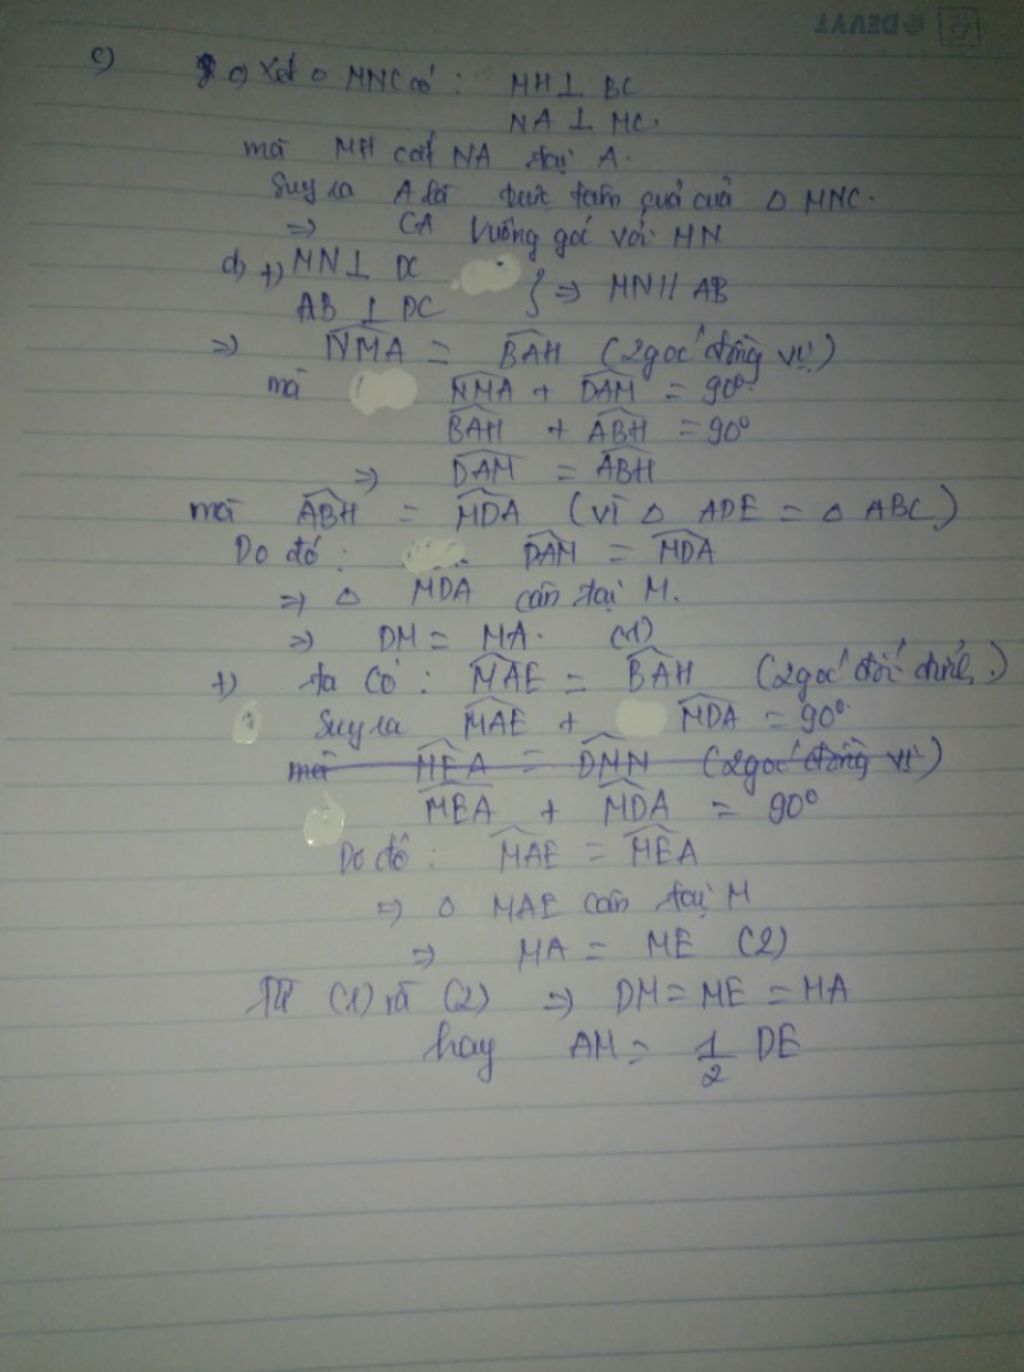 DEVYT
c) c) Xét △ MNC có : MH ⊥ BC
NA ⊥ MC.
mà MH cắt NA tại A.
Suy ra A là trực tâm quả của △ MNC.
=> CA vuông góc với MN
d) +) MN ⊥ DC
AB ⊥ DC } => MN // AB
=> \widehat{NMA} = \widehat{BAH} (2 góc đồng vị)
mà \widehat{NMA} + \widehat{DAM} = 90°
\widehat{BAH} + \widehat{ABH} = 90°
=> \widehat{DAM} = \widehat{ABH}
mà \widehat{ABH} = \widehat{MDA} (vì △ ADE = △ ABC)
Do đó : \widehat{DAM} = \widehat{MDA}
=> △ MDA cân tại M.
=> DM = MA. (1)
+) ta có : \widehat{MAE} = \widehat{BAH} (2 góc đối đỉnh.)
Suy ra \widehat{MAE} + \widehat{MDA} = 90°
mà \widehat{MEA} = \widehat{DMN} (2 góc đồng vị)
\widehat{MEA} + \widehat{MDA} = 90°
Do đó : \widehat{MAE} = \widehat{MEA}
=> △ MAE cân tại M
=> MA = ME (2)
Từ (1) và (2) => DM = ME = MA
hay AM = \frac{1}{2} DE